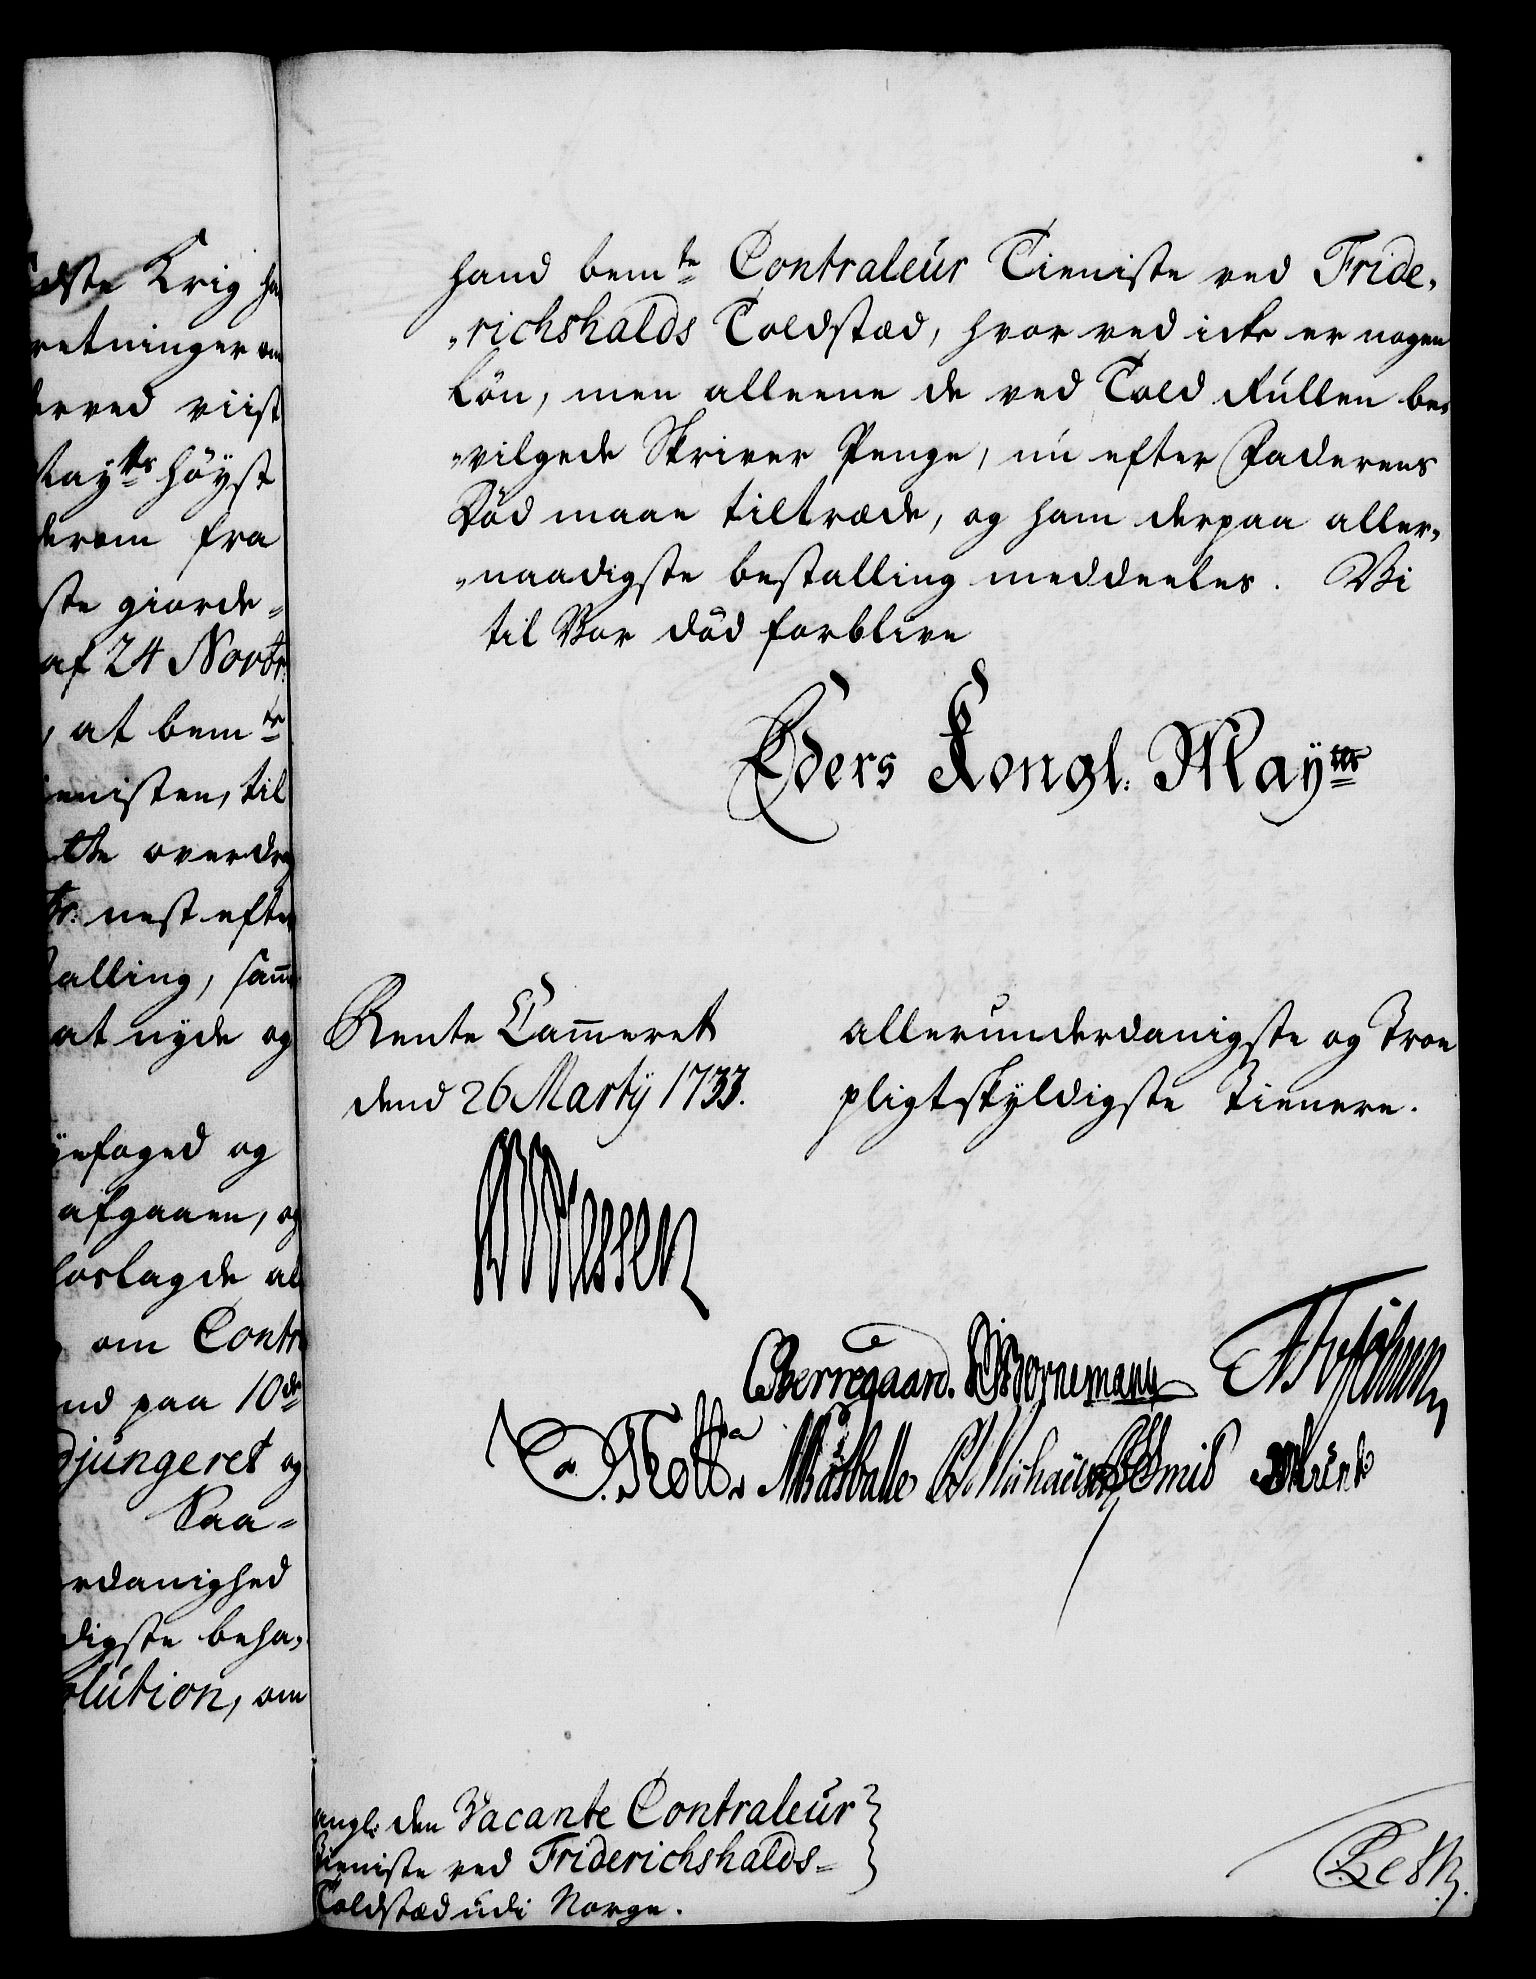 dste Krig ha
retninger om
derved viist
May^tts höyst
derom fra
ste giorde-
af 24 Novbr:
, at bem^te
ienisten, til
overdrag
nest efter
talling, sam̄e
at nyde og
yefoged og
afgaaen, og
foreslagde al
om Contr
nd paa 10^de
djungeret og
Saa-
rdanighed
digste beha-
olution, om
hand bem^te Contraleur Tieniste ved Fride-
-richshalds Toldstæd, hvor ved icke er nogen
Lön, men alleene de ved Told Rullen be-
-vilgede Skriver Penge, nu efter Faderens
Död maae tiltræde, og ham derpaa aller-
-naadigste bestalling meddeeles. Vi
til Vor död forblive
Eders Kongl. May^tts
Rente Cam̄eret
dend 26 Martÿ 1733.
allerunderdanigste og Troe
pligtskyldigste Tienere.
Berregaard. Bornemann
angl: den Vacante Contraleur
Tieniste ved Friderichshalds-
Toldstæd udi Norge.